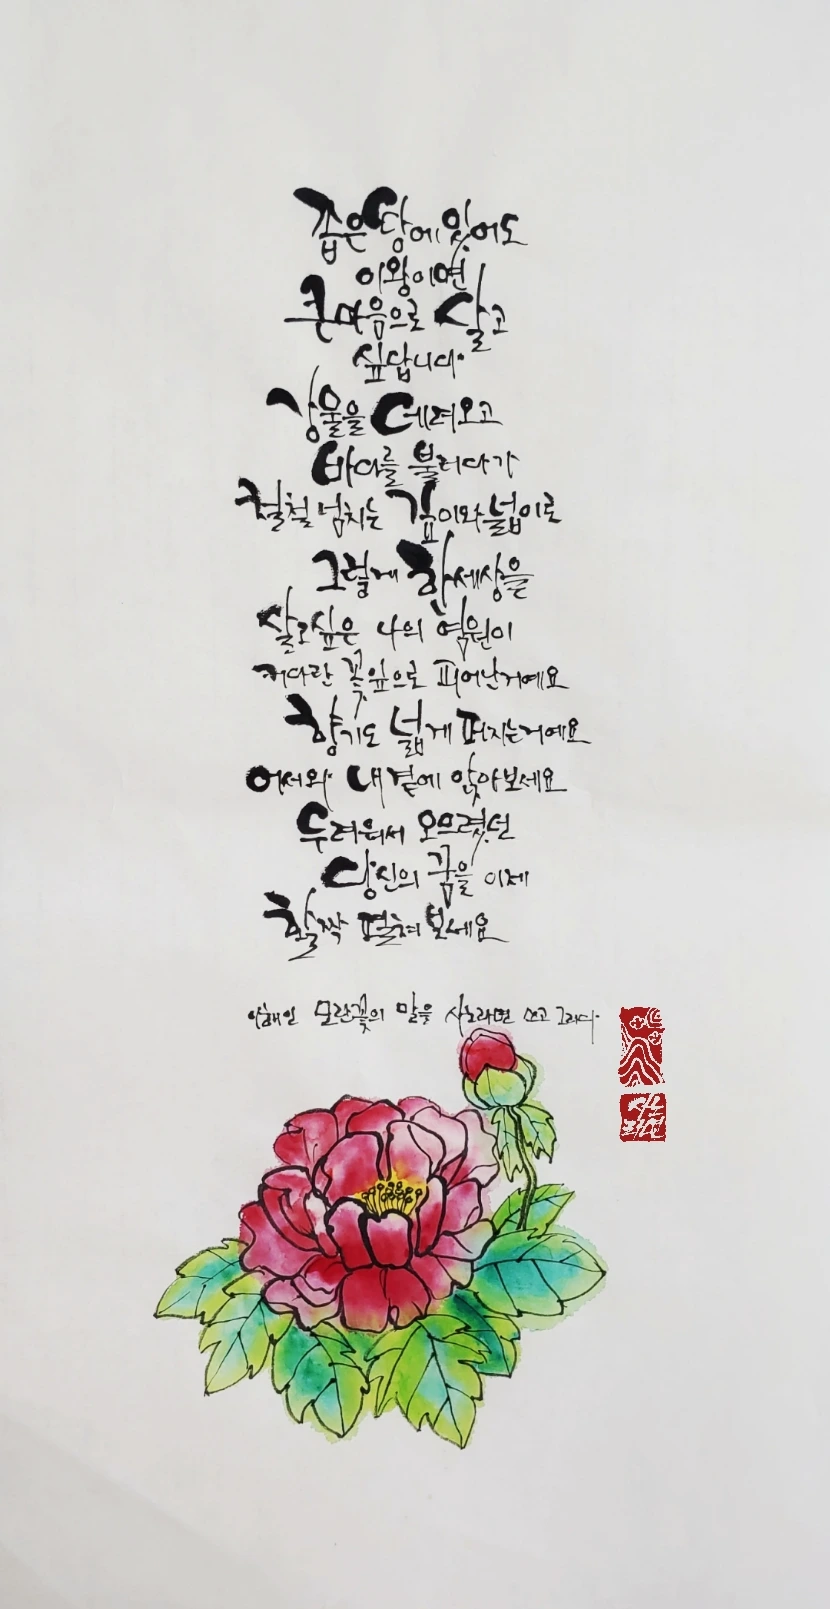 좁은 땅에 있어도
이왕이면
큰마음으로 살고
싶답니다.
강물을 데려오고
바다를 불러다가
철철 넘치는 깊이와 넓이로
그렇게 한세상을
살고싶은 나의 염원이
커다란 꽃잎으로 피어난거예요
향기도 넓게 퍼지는거예요
어서와 내곁에 앉아보세요
두려워서 오므렸던
당신의 꿈을 이제
활짝 펼쳐보세요
이해인 모란꽃의 말을 쓰고 그리다.